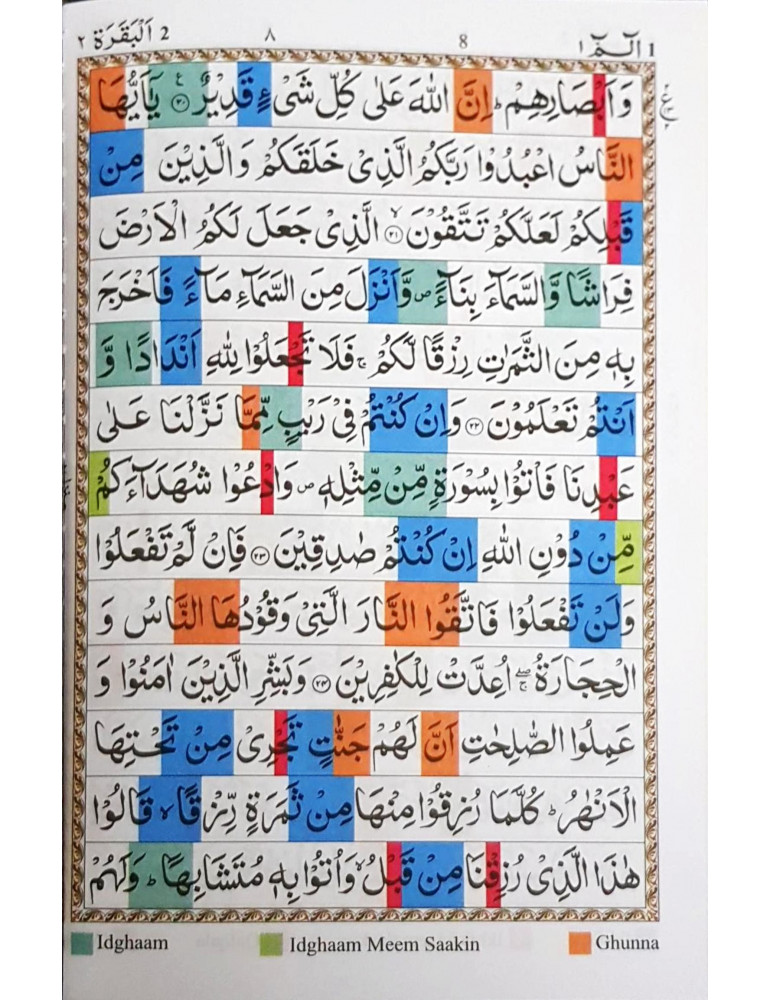 1 الٓـمّٓ ١ 8 ٨ 2 اَلْبَقَرَة ٢
وَاَبْصَارِهِمْ ؕ اِنَّ اللّٰهَ عَلٰى كُلِّ شَىْءٍ قَدِيْرٌ ۟ع ۲۰ يٰٓاَيُّهَا
النَّاسُ اعْبُدُوْا رَبَّكُمُ الَّذِىْ خَلَقَكُمْ وَالَّذِيْنَ مِنْ
قَبْلِكُمْ لَعَلَّكُمْ تَتَّقُوْنَ ۙ ۲۱ الَّذِىْ جَعَلَ لَكُمُ الْاَرْضَ
فِرَاشًا وَّالسَّمَآءَ بِنَآءً ص وَّاَنْزَلَ مِنَ السَّمَآءِ مَآءً فَاَخْرَجَ
بِهٖ مِنَ الثَّمَرٰتِ رِزْقًا لَّكُمْ ۚ فَلَا تَجْعَلُوْا لِلّٰهِ اَنْدَادًا وَّ
اَنْتُمْ تَعْلَمُوْنَ ۲۲ وَاِنْ كُنْتُمْ فِىْ رَيْبٍ مِّمَّا نَزَّلْنَا عَلٰى
عَبْدِنَا فَاْتُوْا بِسُوْرَةٍ مِّنْ مِّثْلِهٖ ص وَادْعُوْا شُهَدَآءَكُمْ
مِّنْ دُوْنِ اللّٰهِ اِنْ كُنْتُمْ صٰدِقِيْنَ ۲۳ فَاِنْ لَّمْ تَفْعَلُوْا
وَلَنْ تَفْعَلُوْا فَاتَّقُوا النَّارَ الَّتِىْ وَقُوْدُهَا النَّاسُ وَ
الْحِجَارَةُ ۖۚ اُعِدَّتْ لِلْكٰفِرِيْنَ ۲۴ وَبَشِّرِ الَّذِيْنَ اٰمَنُوْا وَ
عَمِلُوا الصّٰلِحٰتِ اَنَّ لَهُمْ جَنّٰتٍ تَجْرِىْ مِنْ تَحْتِهَا
الْاَنْهٰرُ ؕ كُلَّمَا رُزِقُوْا مِنْهَا مِنْ ثَمَرَةٍ رِّزْقًا ۙ قَالُوْا
هٰذَا الَّذِىْ رُزِقْنَا مِنْ قَبْلُ ۙ وَاُتُوْا بِهٖ مُتَشَابِهًا ؕ وَلَهُمْ
Idghaam Idghaam Meem Saakin Ghunna